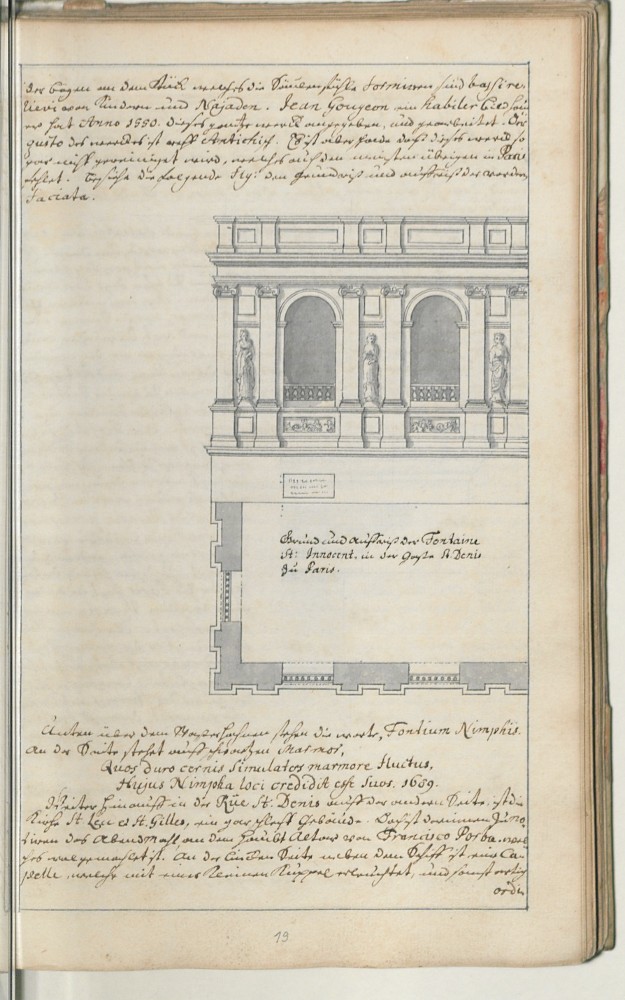 der bogen an dem Stück welches die Säulenstüle formiren sind bassire-
lievi von Kindern und Najaden. Jean Gougeon ein habiler
hat Anno 1550. dieses gantze werck angegeben, und gearbeitet. Der
gusto des werckes ist recht Antichisch. Es ist aber schade daß dieses werck so
gar nicht gereiniget wird, welches auch den meisten übrigen in Paris
fehlet. besiehe die folgende Fig: den grundriß und aufriß der vordern
Faciata.
Grund und aufriß der Fontaine
St: Innocent. in der gaße St. Denis
zu Paris.
Unten über dem stehen die worte, Fontium Nimphis.
An der Seite stehet auf schwartzen Marmor,
Quos duro cernis simulatos marmore fluctus,
Hujus Nimpha loci credidit esse suos. 1689.
Weiter hinauf in der Rüe St. Denis auf der andern Seite, ist die
Kirche St. Leu et St. Gilles, ein gar schlecht Gebäude. Doch ist darinnen zu
das Abendmahl an dem Haubt Altar von Francisco Porba. wel
ches wol gemacht ist. An der lincken Seite neben dem Schiff ist eine Ca-
pelle, welche mit einer kleinen Kuppel erleuchtet, und sonst artig
ordi
19